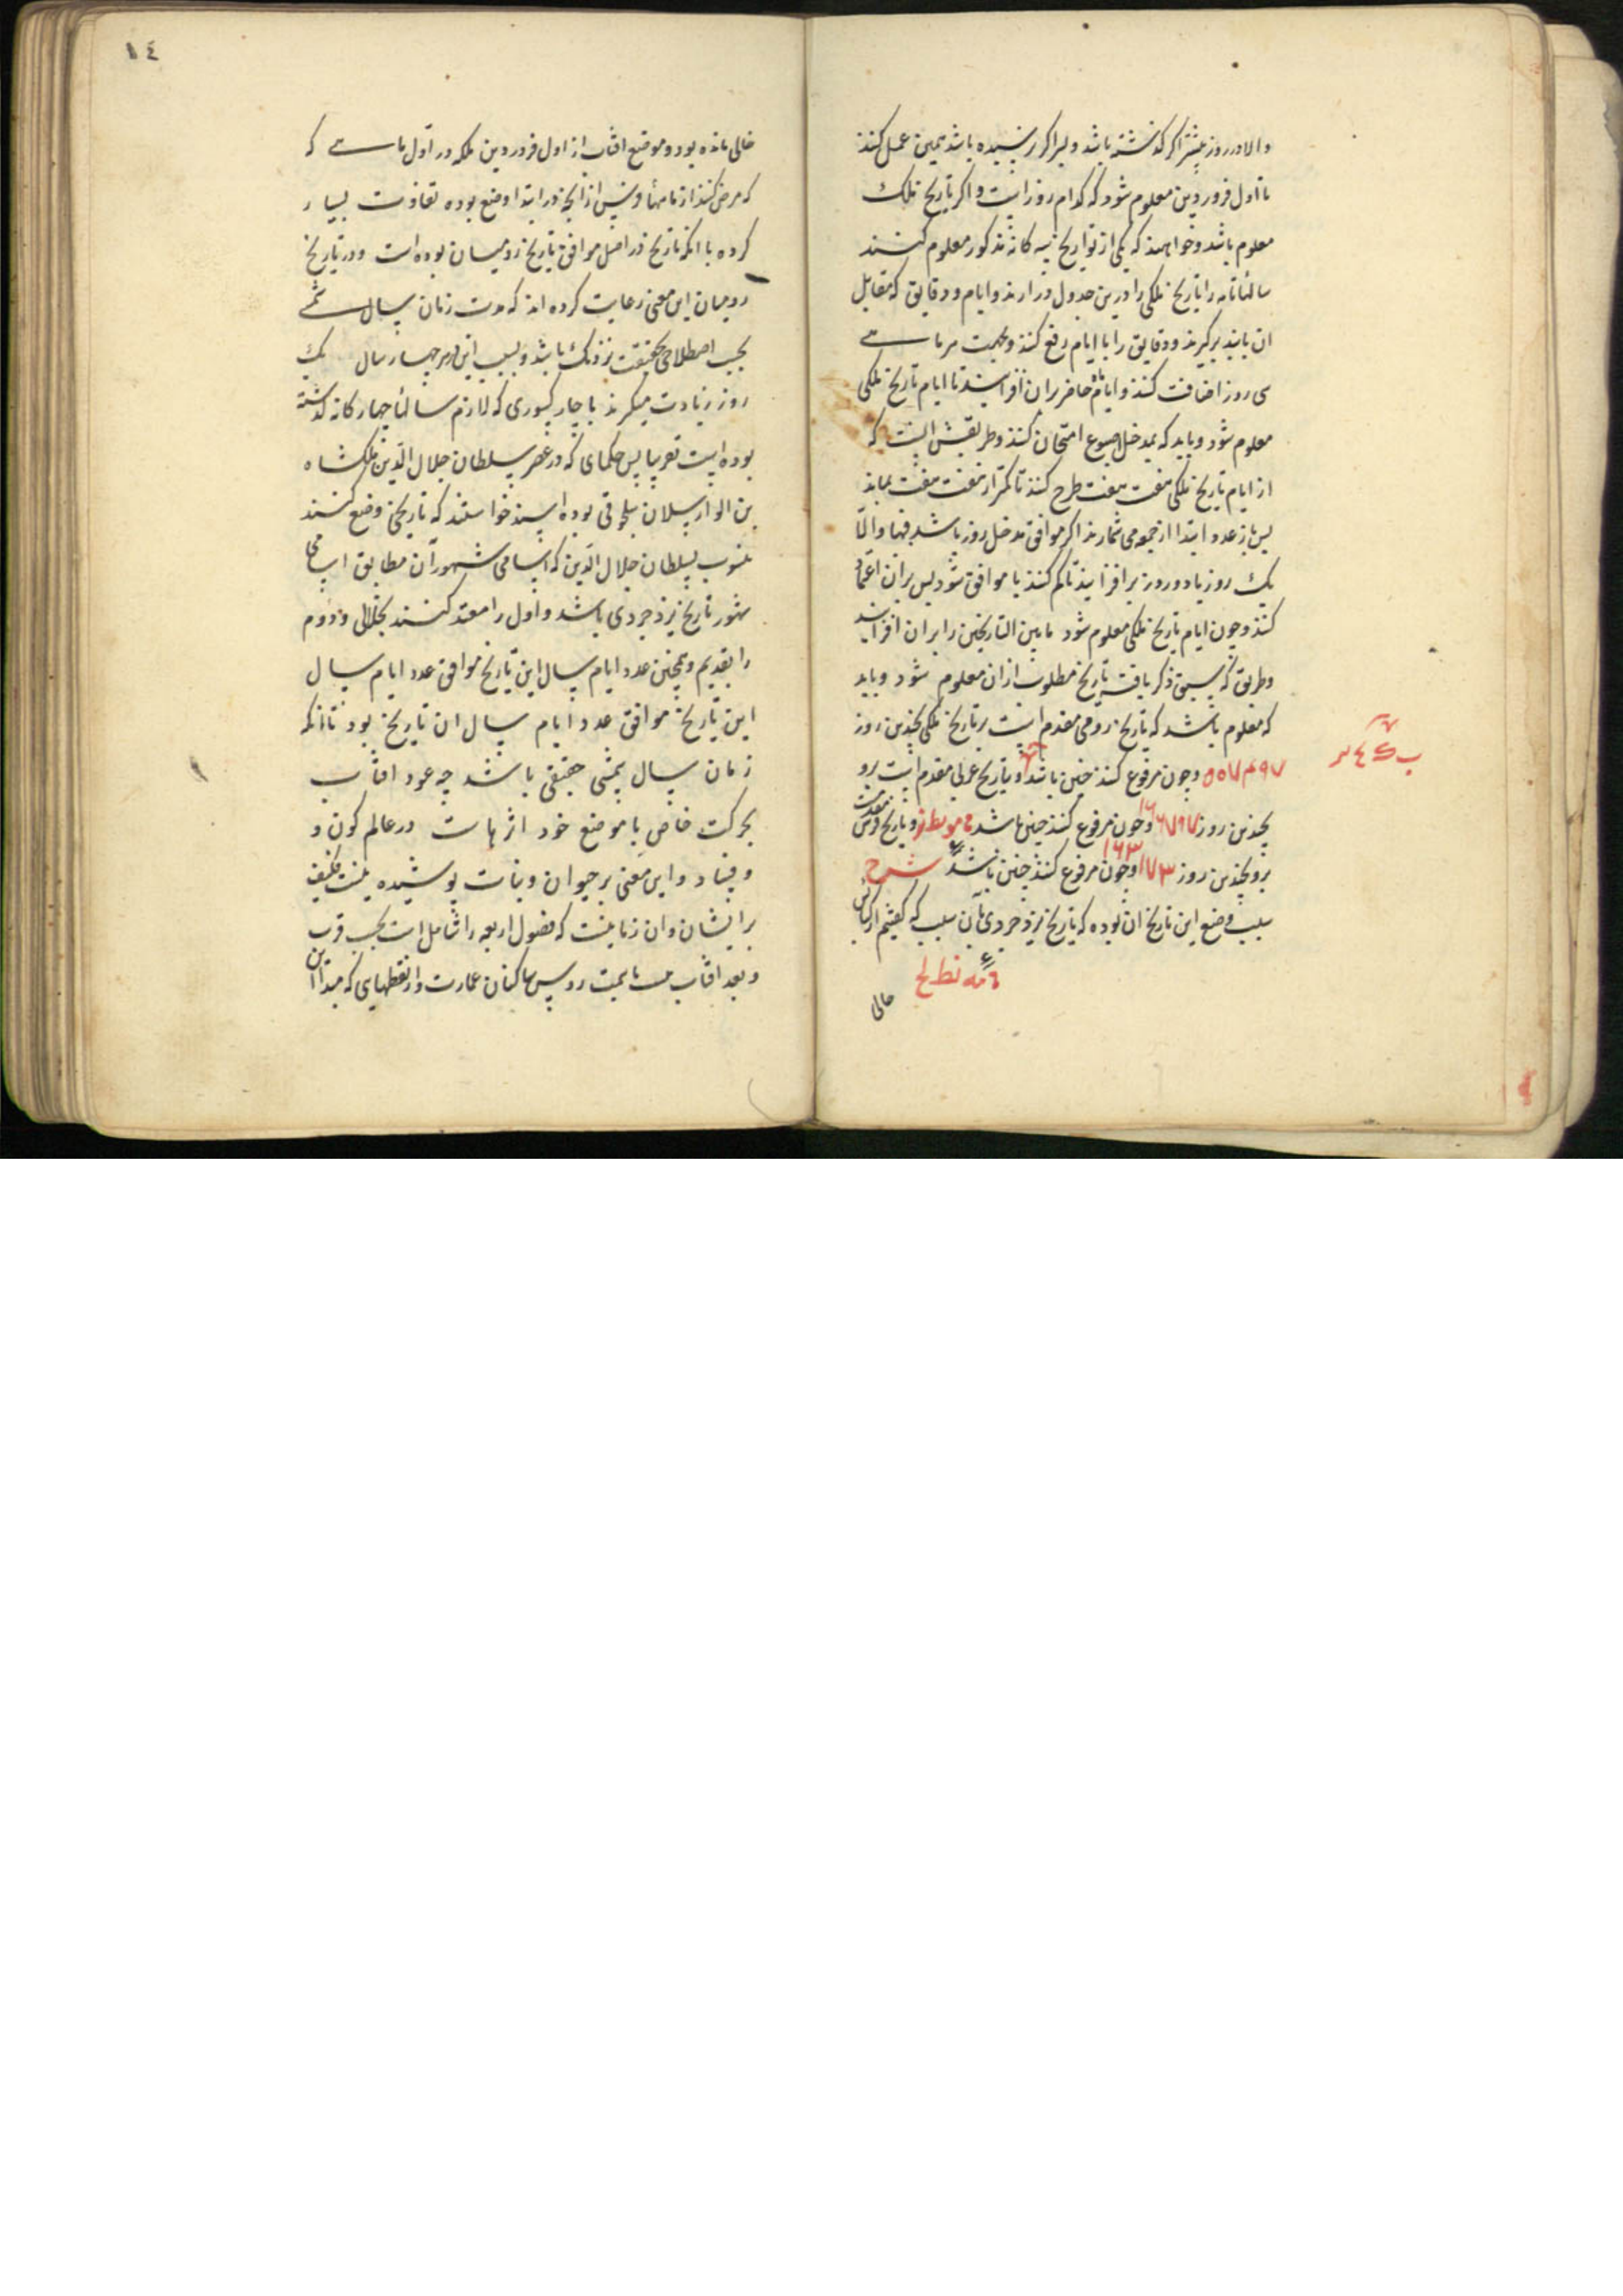 والا در روز پیشتر اکر کذشته باشد و بسرا کر نرسیده باشد همین عمل کنند
تا اول فروردین معلوم شود که کدام روز است و اکر تاریخ ملک
معلوم باشد و خواهند که یکی از تواریخ سه کانه مذکور معلوم کنند
سالهاء تامه را تاریخ ملکی را درین جدول در ارند و ایام و دقایق که مقابل
ان یابند برکیرند و دقایق را با ایام رفع کنند و بجهت هر ماهے
سی روز اضافت کنند و ایام ماه حاضر بران افزایند تا ایام تاریخ ملکی
معلوم شود و باید که بمدخل اسبوع امتحان کنند و طریقش انست که
از ایام تاریخ ملکی هفت هفت طرح کنند تا کمتر از هفت هفت بماند
پس باز عدد ابتدا از جمعه می شمارند اکر موافق مدخل روز باشد فبها والا
یک روز یا دو روز بر افزایند یا کم کنند یا موافق شود پس بران اعتماد
کنند و چون ایام تاریخ ملکی معلوم شود ما بین التاریخین را بران افزایند
و طریق که سبق ذکر یافته تاریخ مطلوب ازان معلوم شود و باید
که معلوم باشد که تاریخ رومی مقدم است بر تاریخ ملکی بچندین روز
۵۰۷۴۹۷ و چون مرفوع کنند چنین باشد و تاریخ عربی مقدم است برو
بچندین روز ۱۶۶۷۹۷ و چون مرفوع کنند چنین باشد مومطر و تاریخ فرس مقدمست
برو بچندین روز ۱۶۳۱۷۳ و چون مرفوع کنند چنین باشد شرح
سبب وضع این تاریخ ان بوده که تاریخ یزدجردی بآن سبب که کفتیم از کبایس
مه نط لح
خالی
۱٤
خالی مانده بود و موضع افتاب از اول فروردین بلکه در اول ماهے که
که فرض کنند از ماهها و پس از انچه در ابتدا وضع بوده تفاوت بسیار
کرده با انکه تاریخ در اصل موافق تاریخ رومیان بوده است و در تاریخ
رومیان این معنی رعایت کرده اند که مدت زمان سال شمسے
بحسب اصطلاحی بحقیقت نزدیک باشد و بسبب این در هر چهار سال یک
روز زیادت میکیرند با چار کسوری که لازم سالهاء چهارکانه کذشته
بوده است تقریبا پس حکمای که در عصر سلطان جلال الدین ملکشاه
بن الب ارسلان سلجوقی بوده اند خواستند که تاریخی وضع کنند
منسوب بسلطان جلال الدین که اسامی شهور آن مطابق اسامی
شهور تاریخ یزدجردی باشد و اول را مقید کنند بجلالی و دوم
را بقدیم و همچنین عدد ایام سال این تاریخ موافق عدد ایام سال
این تاریخ موافق عدد ایام سال ان تاریخ بود تا انکه
زمان سال شمسی حقیقی باشد چه عود افتاب
بحرکت خاص با موضع خود اثرهاست در عالم کون و
و فساد و این معنی بر حیوان و نبات پوشیده نیست فکیف
بر ایشان و ان زمانیست که فصول اربعه را شاملست بحسب قرب
و بعد افتاب مسامت روس ساکنان عمارت و از نقطهای که مبدا این